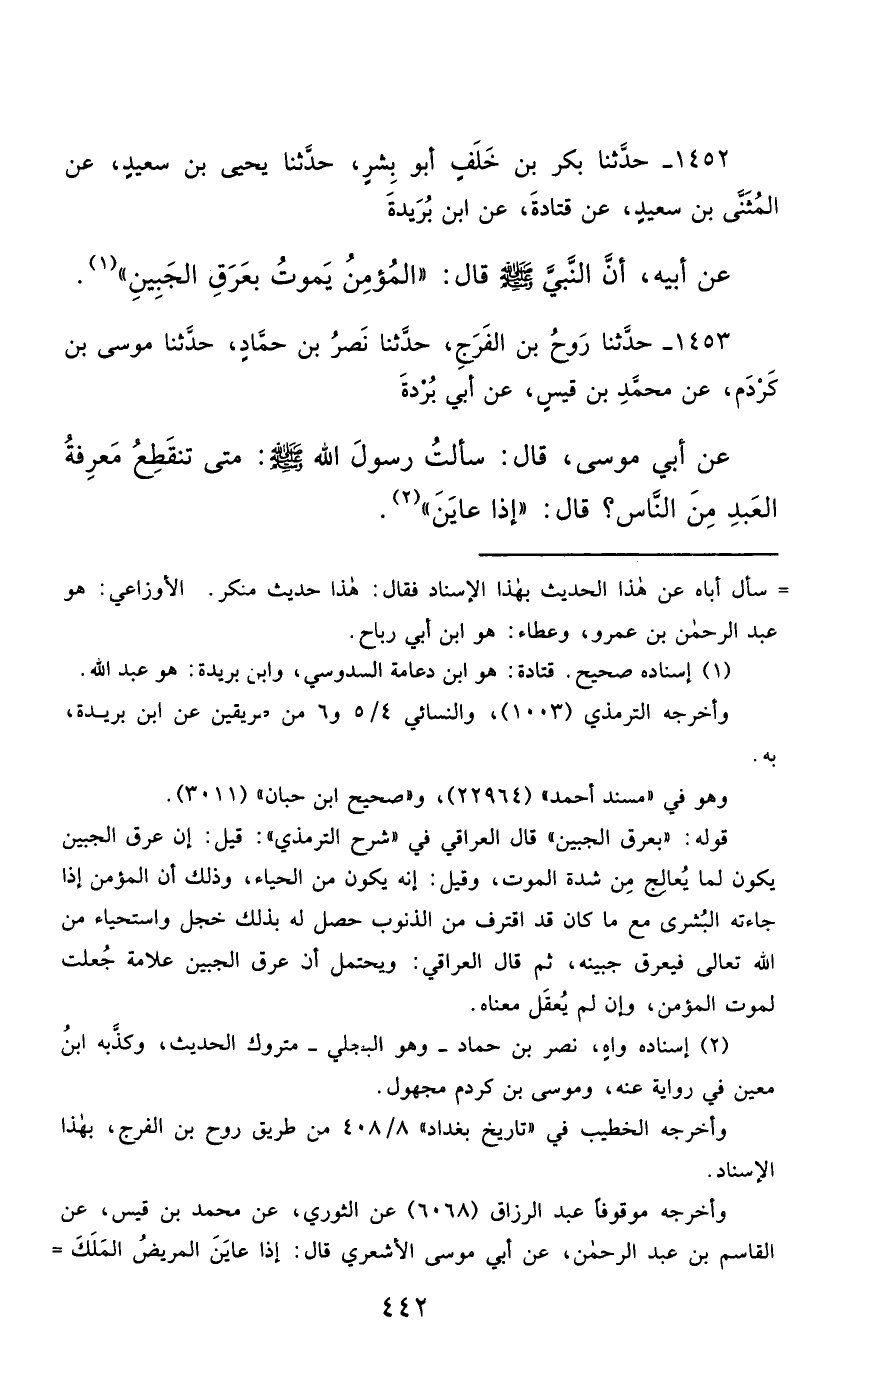 ١٤٥٢ـ حدَّثنا بكر بن خَلَفٍ أبو بِشرٍ، حدَّثنا يحيى بن سعيدٍ، عن
المُثَنَّى بن سعيدٍ، عن قتادةَ، عن ابن بُرَيدةَ
عن أبيه، أنَّ النَّبيَّ ﷺ قال: «المُؤمِنُ يَموتُ بعَرَقِ الجَبِينِ»(١).
١٤٥٣ـ حدَّثنا رَوحُ بن الفَرَجِ، حدَّثنا نَصرُ بن حمَّادٍ، حدَّثنا موسى بن
كَرْدَم، عن محمَّدِ بن قيسٍ، عن أبي بُرْدةَ
عن أبي موسى، قال: سألتُ رسولَ الله ﷺ: متى تنقَطِعُ مَعرِفةُ
العَبدِ مِنَ النَّاس؟ قال: «إذا عايَنَ»(٢).
= سأل أباه عن هٰذا الحديث بهٰذا الإسناد فقال: هٰذا حديث منكر. الأوزاعي: هو
عبد الرحمٰن بن عمرو، وعطاء: هو ابن أبي رباح.
(١) إسناده صحيح. قتادة: هو ابن دعامة السدوسي، وابن بريدة: هو عبد الله.
وأخرجه الترمذي (١٠٠٣)، والنسائي ٤/ ٥ و٦ من طريقين عن ابن بريـدة،
به.
وهو في «مسند أحمد» (٢٢٩٦٤)، و«صحيح ابن حبان» (٣٠١١).
قوله: «بعرق الجبين» قال العراقي في «شرح الترمذي»: قيل: إن عرق الجبين
يكون لما يُعالِج مِن شدة الموت، وقيل: إنه يكون من الحياء، وذلك أن المؤمن إذا
جاءته البُشرى مع ما كان قد اقترف من الذنوب حصل له بذلك خجل واستحياء من
الله تعالى فيعرق جبينه، ثم قال العراقي: ويحتمل أن عرق الجبين علامة جُعلت
لموت المؤمن، وإن لم يُعقَل معناه.
(٢) إسناده واهٍ، نصر بن حماد ـ وهو البجلي ـ متروك الحديث، وكذَّبه ابنُ
معين في رواية عنه، وموسى بن كردم مجهول.
وأخرجه الخطيب في «تاريخ بغداد» ٤٠٨/٨ من طريق روح بن الفرج، بهٰذا
الإسناد.
وأخرجه موقوفاً عبد الرزاق (٦٠٦٨) عن الثوري، عن محمد بن قيس، عن
القاسم بن عبد الرحمٰن، عن أبي موسى الأشعري قال: إذا عايَنَ المريضُ المَلَكَ =
٤٤٢